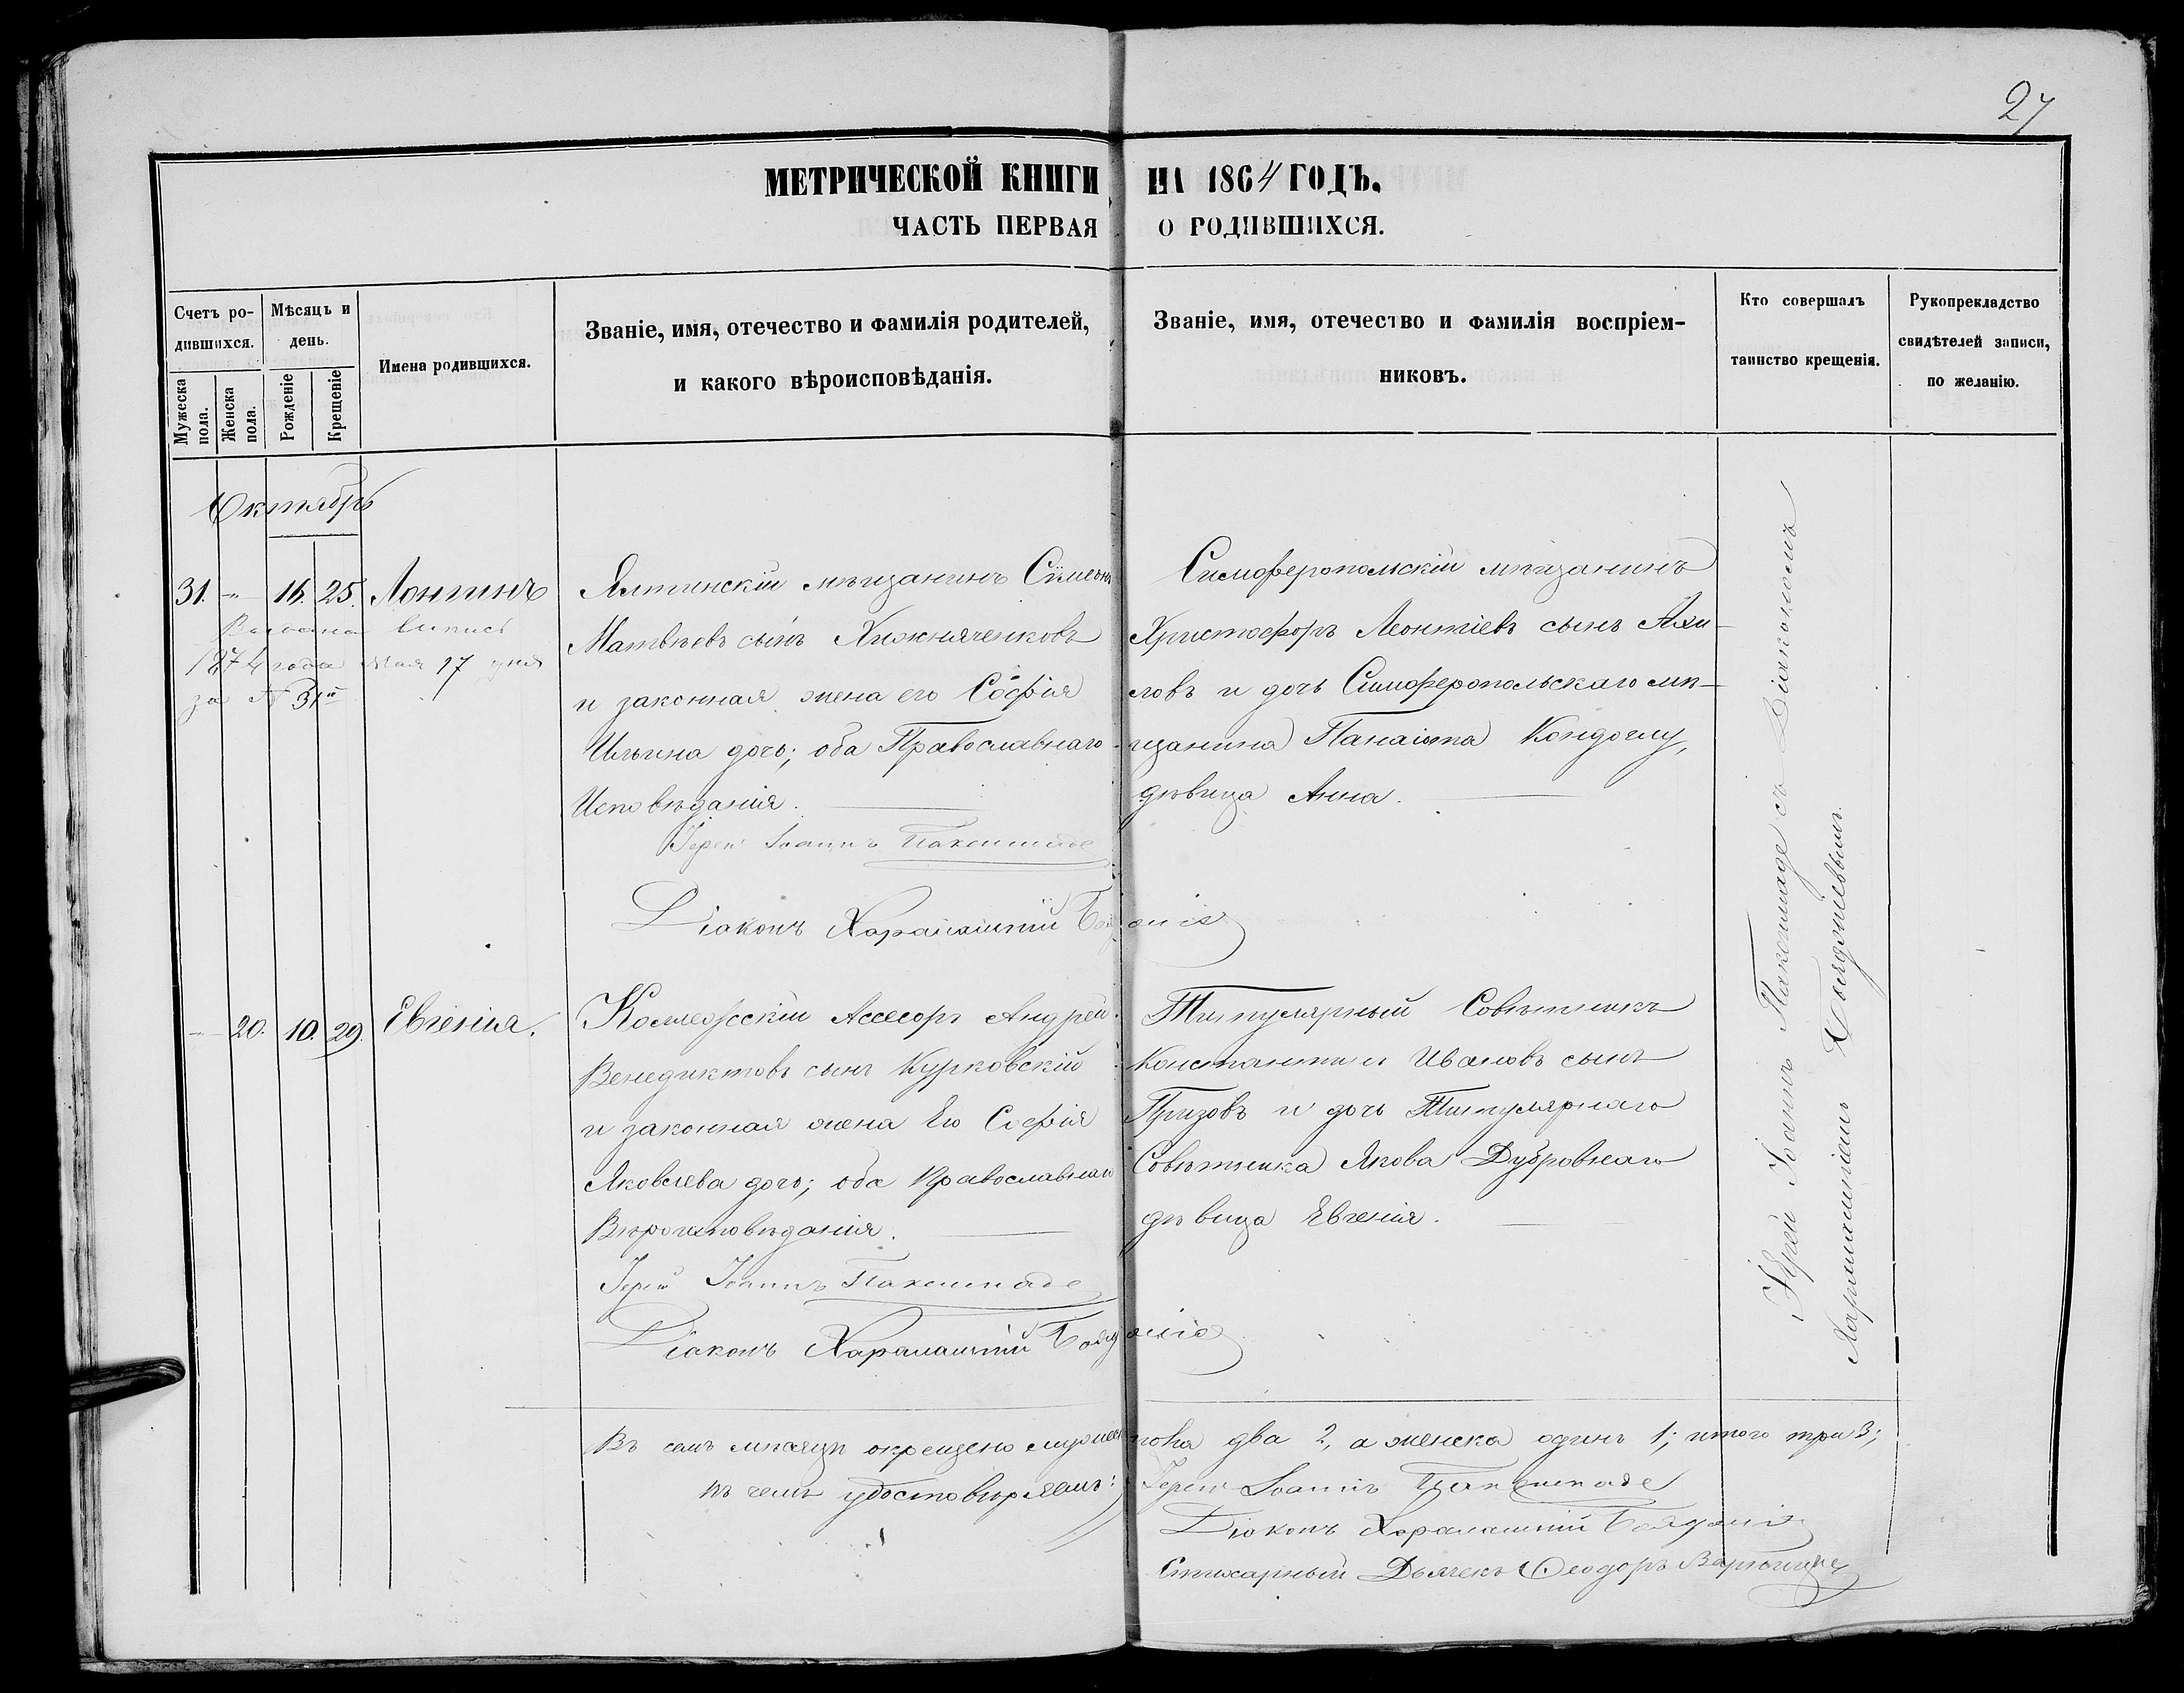 27
МЕТРИЧЕСКОЙ КНИГИ НА 1864 ГОДЪ.
ЧАСТЬ ПЕРВАЯ О РОДИВШИХСЯ.
Счетъ ро-
дившихся.
Мужеска пола.
Женска пола.
Мѣсяцъ и
день.
Рожденіе
Крещеніе
Имена родившихся.
Званіе, имя, отечество и фамилія родителей,
и какого вѣроисповѣданія.
Званіе, имя, отечество и фамилія воспріем-
никовъ.
Кто совершалъ
таинство крещенія.
Рукопрекладство
свидѣтелей записи,
по желанію.
Октябрь
31. 16. 25. Лонгинъ
1874 года Мая 17 дня
за № 31
Ялтинскій мѣщанинъ Сѵмеонъ
Матвѣевъ сынъ
и законная жена его Софія
Ильина дочь; оба Православнаго
Исповѣданія.
Іерей Іоаннъ
Діаконъ Харалампій
Симферопольскій мѣщанинъ
Христофоръ Леонтіевъ сынъ Ахи-
ловъ и дочь Симферопольскаго мѣ-
щанина Панаіота Кондоглу,
дѣвица Анна.
20. 10. 29. Евгенія.
Коллежскій Ассесоръ Андрей
Венедиктовъ сынъ Курковскій
и законная жена Его Софія
Яковлева дочь; оба Православнаго
Вѣроисповѣданія.
Іерей Іоаннъ
Діаконъ Харалампій
Титулярный Совѣтникъ
Константинъ Ивановъ сынъ
Гризовъ и дочь Титулярнаго
Совѣтника Якова Дубровнаго
дѣвица Евгенія.
Іерей Іоаннъ съ Діакономъ
Харалампіемъ
Въ семъ мѣсяцѣ окрещено мужеска пола два 2, а женска одинъ 1; итого три 3;
въ чемъ удостовѣряемъ: Іерей Іоаннъ
Діаконъ Харалампій
Стихарный Дьячекъ Ѳеодоръ